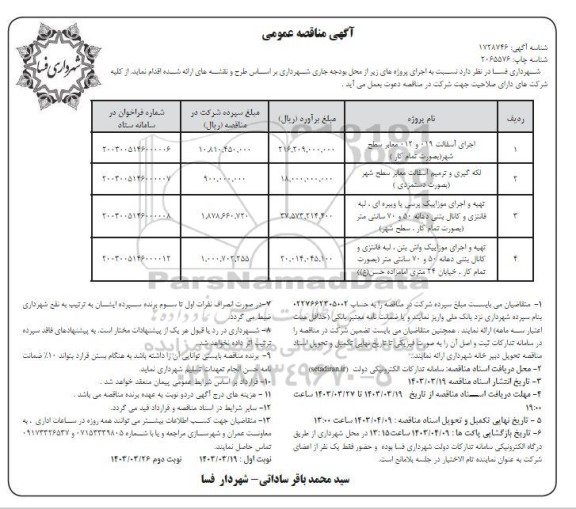 آگهی مناقصه عمومی
شهرداری فسا
شناسه آگهی: ۱۷۲۸۷۴۶
شناسه چاپ: ۲۰۶۵۵۷۶
شهرداری فسا در نظر دارد نسبت به اجرای پروژه های زیر از محل بودجه جاری شهرداری بر اساس طرح و نقشه های ارائه شده اقدام نماید. از کلیه
شرکت های دارای صلاحیت جهت شرکت در مناقصه دعوت بعمل می آید .
ردیف نام پروژه مبلغ برآورد (ریال) مبلغ سپرده شرکت در مناقصه (ریال) شماره فراخوان در سامانه ستاد
۱ اجرای آسفالت ۰-۱۹ و ۰-۱۲ معابر سطح شهر(بصورت تمام کار) ۲۱۶,۲۰۹,۰۰۰,۰۰۰ ۱۰,۸۱۰,۴۵۰,۰۰۰ ۲۰۰۳۰۰۵۱۴۶۰۰۰۰۰۶
۲ لکه گیری و ترمیم آسفالت معابر سطح شهر (بصورت دستمزدی) ۱۸,۰۰۰,۰۰۰,۰۰۰ ۹۰۰,۰۰۰,۰۰۰ ۲۰۰۳۰۰۵۱۴۶۰۰۰۰۰۷
۳ تهیه و اجرای موزاییک پرسی یا ویبره ای ، لبه فانتزی و کانال بتنی دهانه ۵۰ و ۷۰ سانتی متر (بصورت تمام کار ، سطح شهر) ۳۷,۵۷۳,۲۱۴,۴۰۰ ۱,۸۷۸,۶۶۰,۷۲۰ ۲۰۰۳۰۰۵۱۴۶۰۰۰۰۰۸
۴ تهیه و اجرای موزاییک واش بتن ، لبه فانتزی و کانال بتنی دهانه ۵۰ و ۷۰ سانتی متر (بصورت تمام کار ، خیابان ۲۴ متری امامزاده حسن(ع)) ۲۰,۰۱۴,۰۴۵,۱۰۰ ۱,۰۰۰,۷۰۲,۲۵۵ ۲۰۰۳۰۰۵۱۴۶۰۰۰۰۱۲
۱- متقاضیان می بایست مبلغ سپرده شرکت در مناقصه را به حساب ۰۲۲۷۶۶۲۳۰۵۰۰۲
بنام سپرده شهرداری نزد بانک ملی واریز نمایند و یا ضمانت نامه معتبر بانکی (حداقل مدت
اعتبار سه ماهه) ارائه نمایند . همچنین متقاضیان می بایست تضمین شرکت در مناقصه را
در سامانه تدارکات ثبت و اصل آن را به صورت فیزیکی تا تاریخ نهایی تکمیل و تحویل اسناد
مناقصه تحویل دبیر خانه شهرداری ارائه نمایند.
۲- محل دریافت اسناد مناقصه: سامانه تدارکات الکترونیکی دولت (setadiran.ir)
۳- تاریخ انتشار اسناد مناقصه ۱۴۰۳/۰۳/۱۹
۴- مهلت دریافت اسناد مناقصه از تاریخ ۱۴۰۳/۰۳/۱۹ تا ۱۴۰۳/۰۳/۲۷ ساعت
۱۹:۰۰
۵- تاریخ نهایی تکمیل و تحویل اسناد مناقصه : ۱۴۰۳/۰۴/۰۹ ساعت ۱۳:۰۰
۶- تاریخ بازگشایی پاکت ها : ۱۴۰۳/۰۴/۰۹ ساعت ۱۳:۱۵ در محل شهرداری از طریق
درگاه الکترونیکی سامانه تدارکات دولت شهرداری فسا بوده و حضور فقط یک نفر از اعضای
شرکت به عنوان نماینده تام الاختیار در جلسه بلامانع است.
۷- در صورت انصراف نفرات اول تا سوم برنده سپرده ایشان به ترتیب به نفع شهرداری
ضبط می گردد.
۸- شهرداری در رد یا قبول هر یک از پیشنهادات مختار است. به پیشنهادهای فاقد سپرده
ترتیب اثر داده نخواهد شد.
۹- برنده مناقصه بایستی توانایی آن را داشته باشد به هنگام بستن قرارد بتواند ۱۰٪ ضمانت
نامه حسن انجام تعهدات تسلیم شهرداری نماید.
۱۰- قرارداد بر اساس شرایط عمومی پیمان منعقد خواهد شد .
۱۱- هزینه های درج آگهی در دو نوبت به عهده برنده مناقصه می باشد .
۱۲- سایر شرایط در اسناد مناقصه و قرارداد قید می گردد.
۱۳- متقاضیان جهت کسب اطلاعات بیشتر می توانند همه روزه در ساعات اداری ، به
معاونت عمران و شهرسازی مراجعه و یا با شماره ۰۷۱۵۳۳۳۹۸۰۵ و ۰۹۱۷۳۳۲۶۵۳۷
تماس حاصل نمایند.
نوبت اول : ۱۴۰۳/۰۳/۱۹ نوبت دوم ۱۴۰۳/۰۳/۲۶
سید محمد باقر ساداتی - شهردار فسا
ParsNamadData
۰۲۱-۸۸۳۴۹۶۷۰-۵